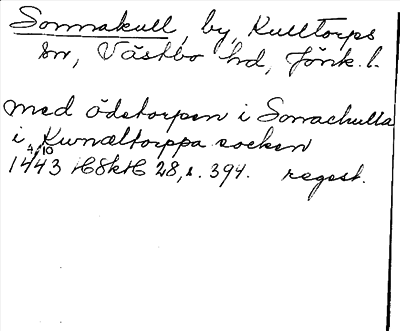 Sonnakull, by, Kulltorps
sn, Västbo hd, Jönk. l.
med ödetorpen i Sonachulla
i Kunaltorppa socken
4/10
1443 HSkH 28, s. 394. regest.